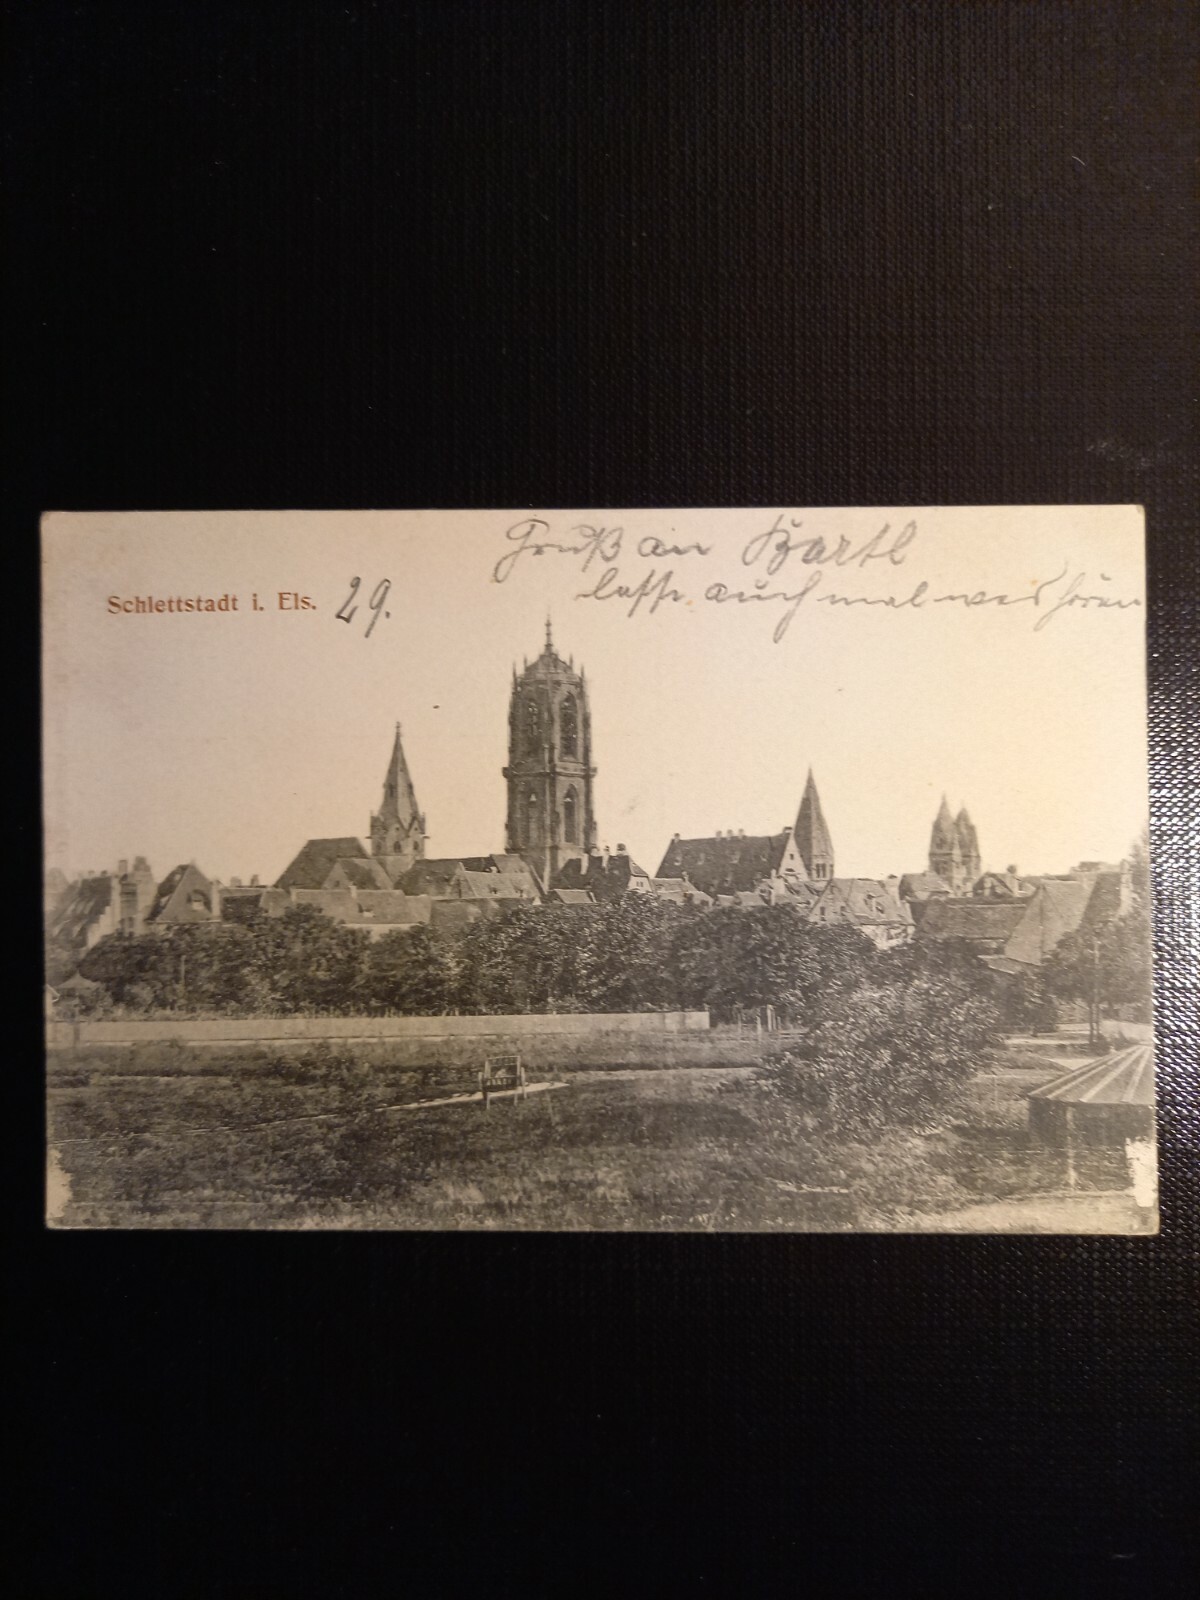 Gruß an Bartl
lasse auch mal was hören
Schlettstadt i. Els. 29.